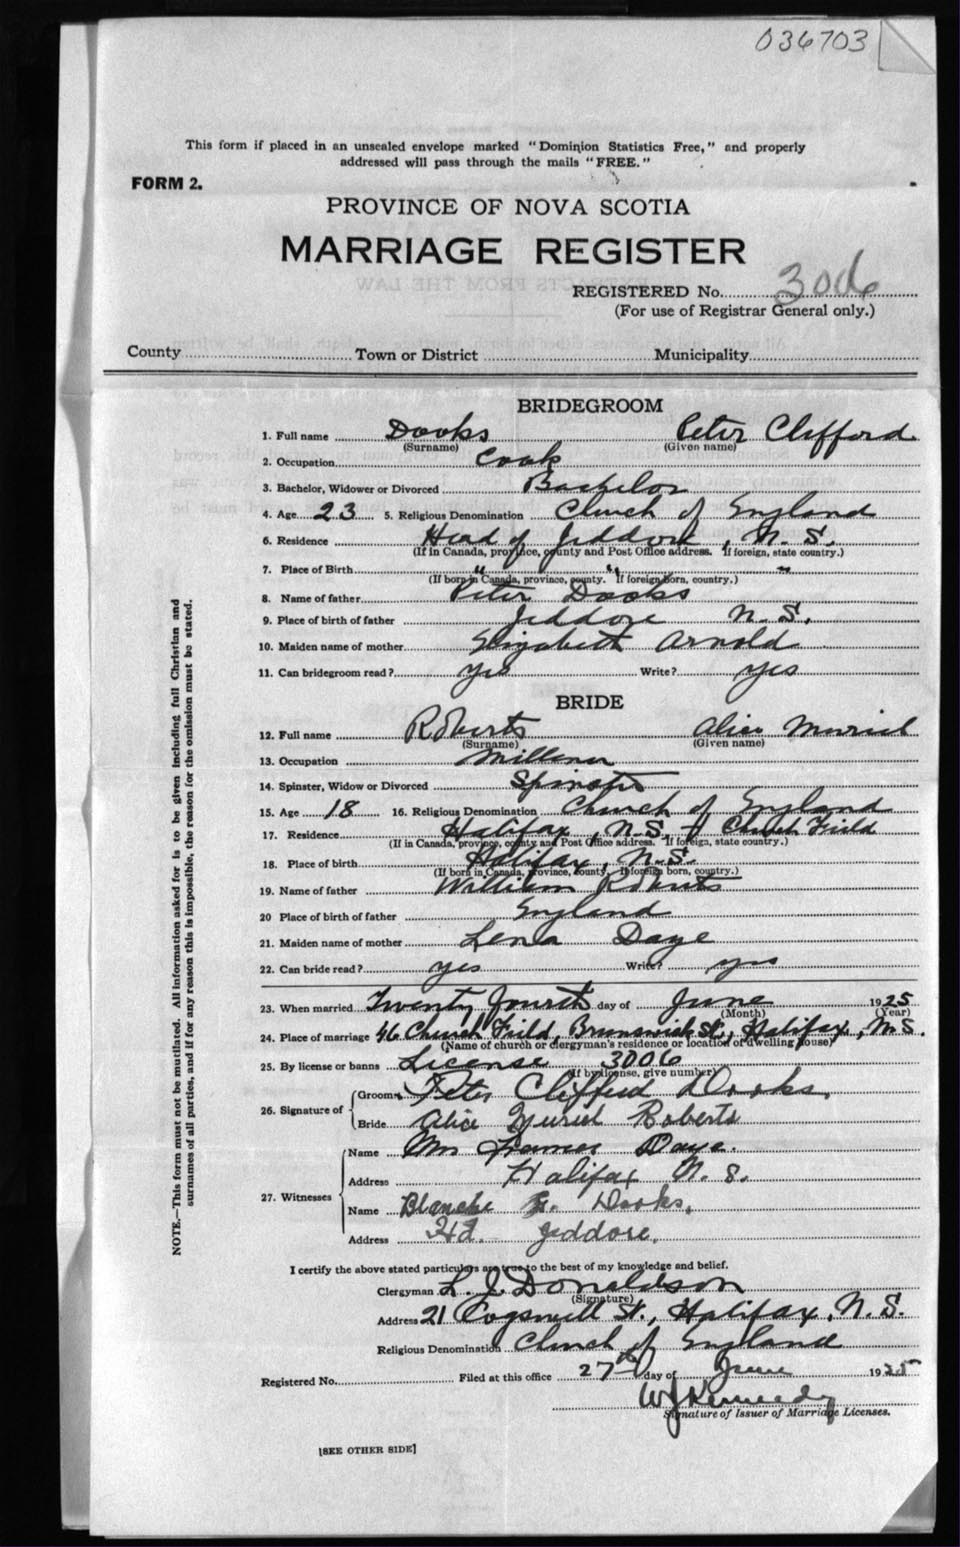 036703
This form if placed in an unsealed envelope marked "Dominion Statistics Free," and properly
addressed will pass through the mails "FREE."
FORM 2.
PROVINCE OF NOVA SCOTIA
MARRIAGE REGISTER
REGISTERED No. 3006
(For use of Registrar General only.)
County Town or District Municipality
BRIDEGROOM
1. Full name Dooks Peter Clifford
(Surname) (Given name)
2. Occupation Cook
3. Bachelor, Widower or Divorced Bachelor
4. Age 23 5. Religious Denomination Church of England
6. Residence Head of Jeddore, N.S.
(If in Canada, province, county and Post Office address. If foreign, state country.)
7. Place of Birth " " "
(If born in Canada, province, county. If foreign born, country.)
8. Name of father Peter Dooks
9. Place of birth of father Jeddore N.S.
10. Maiden name of mother Elizabeth Arnold
11. Can bridegroom read? yes Write? yes
BRIDE
12. Full name Roberts Alice Muriel
(Surname) (Given name)
13. Occupation Milliner
14. Spinster, Widow or Divorced Spinster
15. Age 18 16. Religious Denomination Church of England
17. Residence Halifax, N.S. Church Field
(If in Canada, province, county and Post Office address. If foreign, state country.)
18. Place of birth Halifax, N.S.
(If born in Canada, province, county. If foreign born, country.)
19. Name of father William Roberts
20 Place of birth of father England
21. Maiden name of mother Lena Daye
22. Can bride read? yes Write? yes
23. When married Twenty fourth day of June 1925
(Month) (Year)
24. Place of marriage 46 Church Field, Brunswick St., Halifax, N.S.
(Name of church or clergyman's residence or location of dwelling house)
25. By license or banns License 3006
(If by license, give number)
26. Signature of Groom Peter Clifford Dooks.
Bride Alice Muriel Roberts
27. Witnesses
Name Daye.
Address Halifax N.S.
Name Blanche Dooks,
Address Hd. Jeddore.
I certify the above stated particulars are true to the best of my knowledge and belief.
Clergyman L. J. Donaldson
(Signature)
Address 21 Cogswell St., Halifax, N.S.
Religious Denomination Church of England
Registered No. Filed at this office 27th day of June 1925
W J Kennedy
Signature of Issuer of Marriage Licenses.
[SEE OTHER SIDE]
NOTE.—This form must not be mutilated. All information asked for is to be given including full Christian and
surnames of all parties, and if for any reason this is impossible, the reason for the omission must be stated.